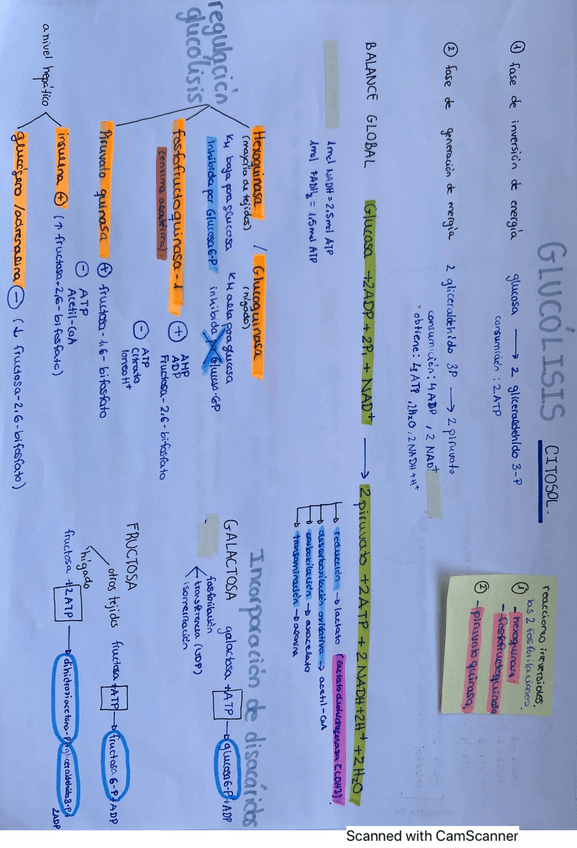 GLUCÓLISIS
CITOSOL.
① fase de inversión de energía glucosa → 2 gliceraldehído 3-P
consumición: 2ATP
② fase de generación de energía 2 gliceraldehído 3P → 2 piruvato
consumición: 4ADP, 2 NAD⁺
obtiene: 4 ATP, 2H₂O, 2 NADH+H⁺
reacciones irreversibles.
① las 2 fosforilaciones
- hexoquinasa
- fosfofructoquinasa
② piruvato quinasa
BALANCE GLOBAL Glucosa +2ADP + 2Pi + NAD⁺ → 2 piruvato + 2ATP + 2 NADH+2H⁺ + 2H₂O
1mol NADH = 2,5mol ATP
1mol FADH₂ = 1,5mol ATP
→ reducción → lactato (lactato deshidrogenasa (LDH))
→ descarboxilación oxidativa → acetil-CoA
→ carboxilación → oxacelato
→ transaminación → alanina
regulación glucólisis
Hexoquinasa / Glucoquinasa
(mayoría de tejidos) (hígado)
KM baja para glucosa KM alta para glucosa
inhibida por Glucosa 6-P inhibida por Glucosa-6P
fosfofructoquinasa-1
(enzima alostérica)
⊕ AMP
ADP
Fructosa-2,6-bifosfato
⊖ ATP
Citrato
iones H⁺
Piruvato quinasa ⊕ fructosa-1,6-bifosfato
⊖ ATP
Acetil-CoA
a nivel hepático
insulina ⊕ (↑ fructosa-2,6-bifosfato)
glucagón/adrenalina ⊖ (↓ fructosa-2,6-bifosfato)
Incorporación de disacáridos
GALACTOSA galactosa +ATP → glucosa 6-P + ADP
fosforilación
transferencia (UDP)
isomerización
FRUCTOSA
otros tejidos fructosa +ATP → fructosa 6-P + ADP
hígado
fructosa +2ATP → dihidroxiacetona-P + gliceraldehído 3-P +
2ADP
Scanned with CamScanner